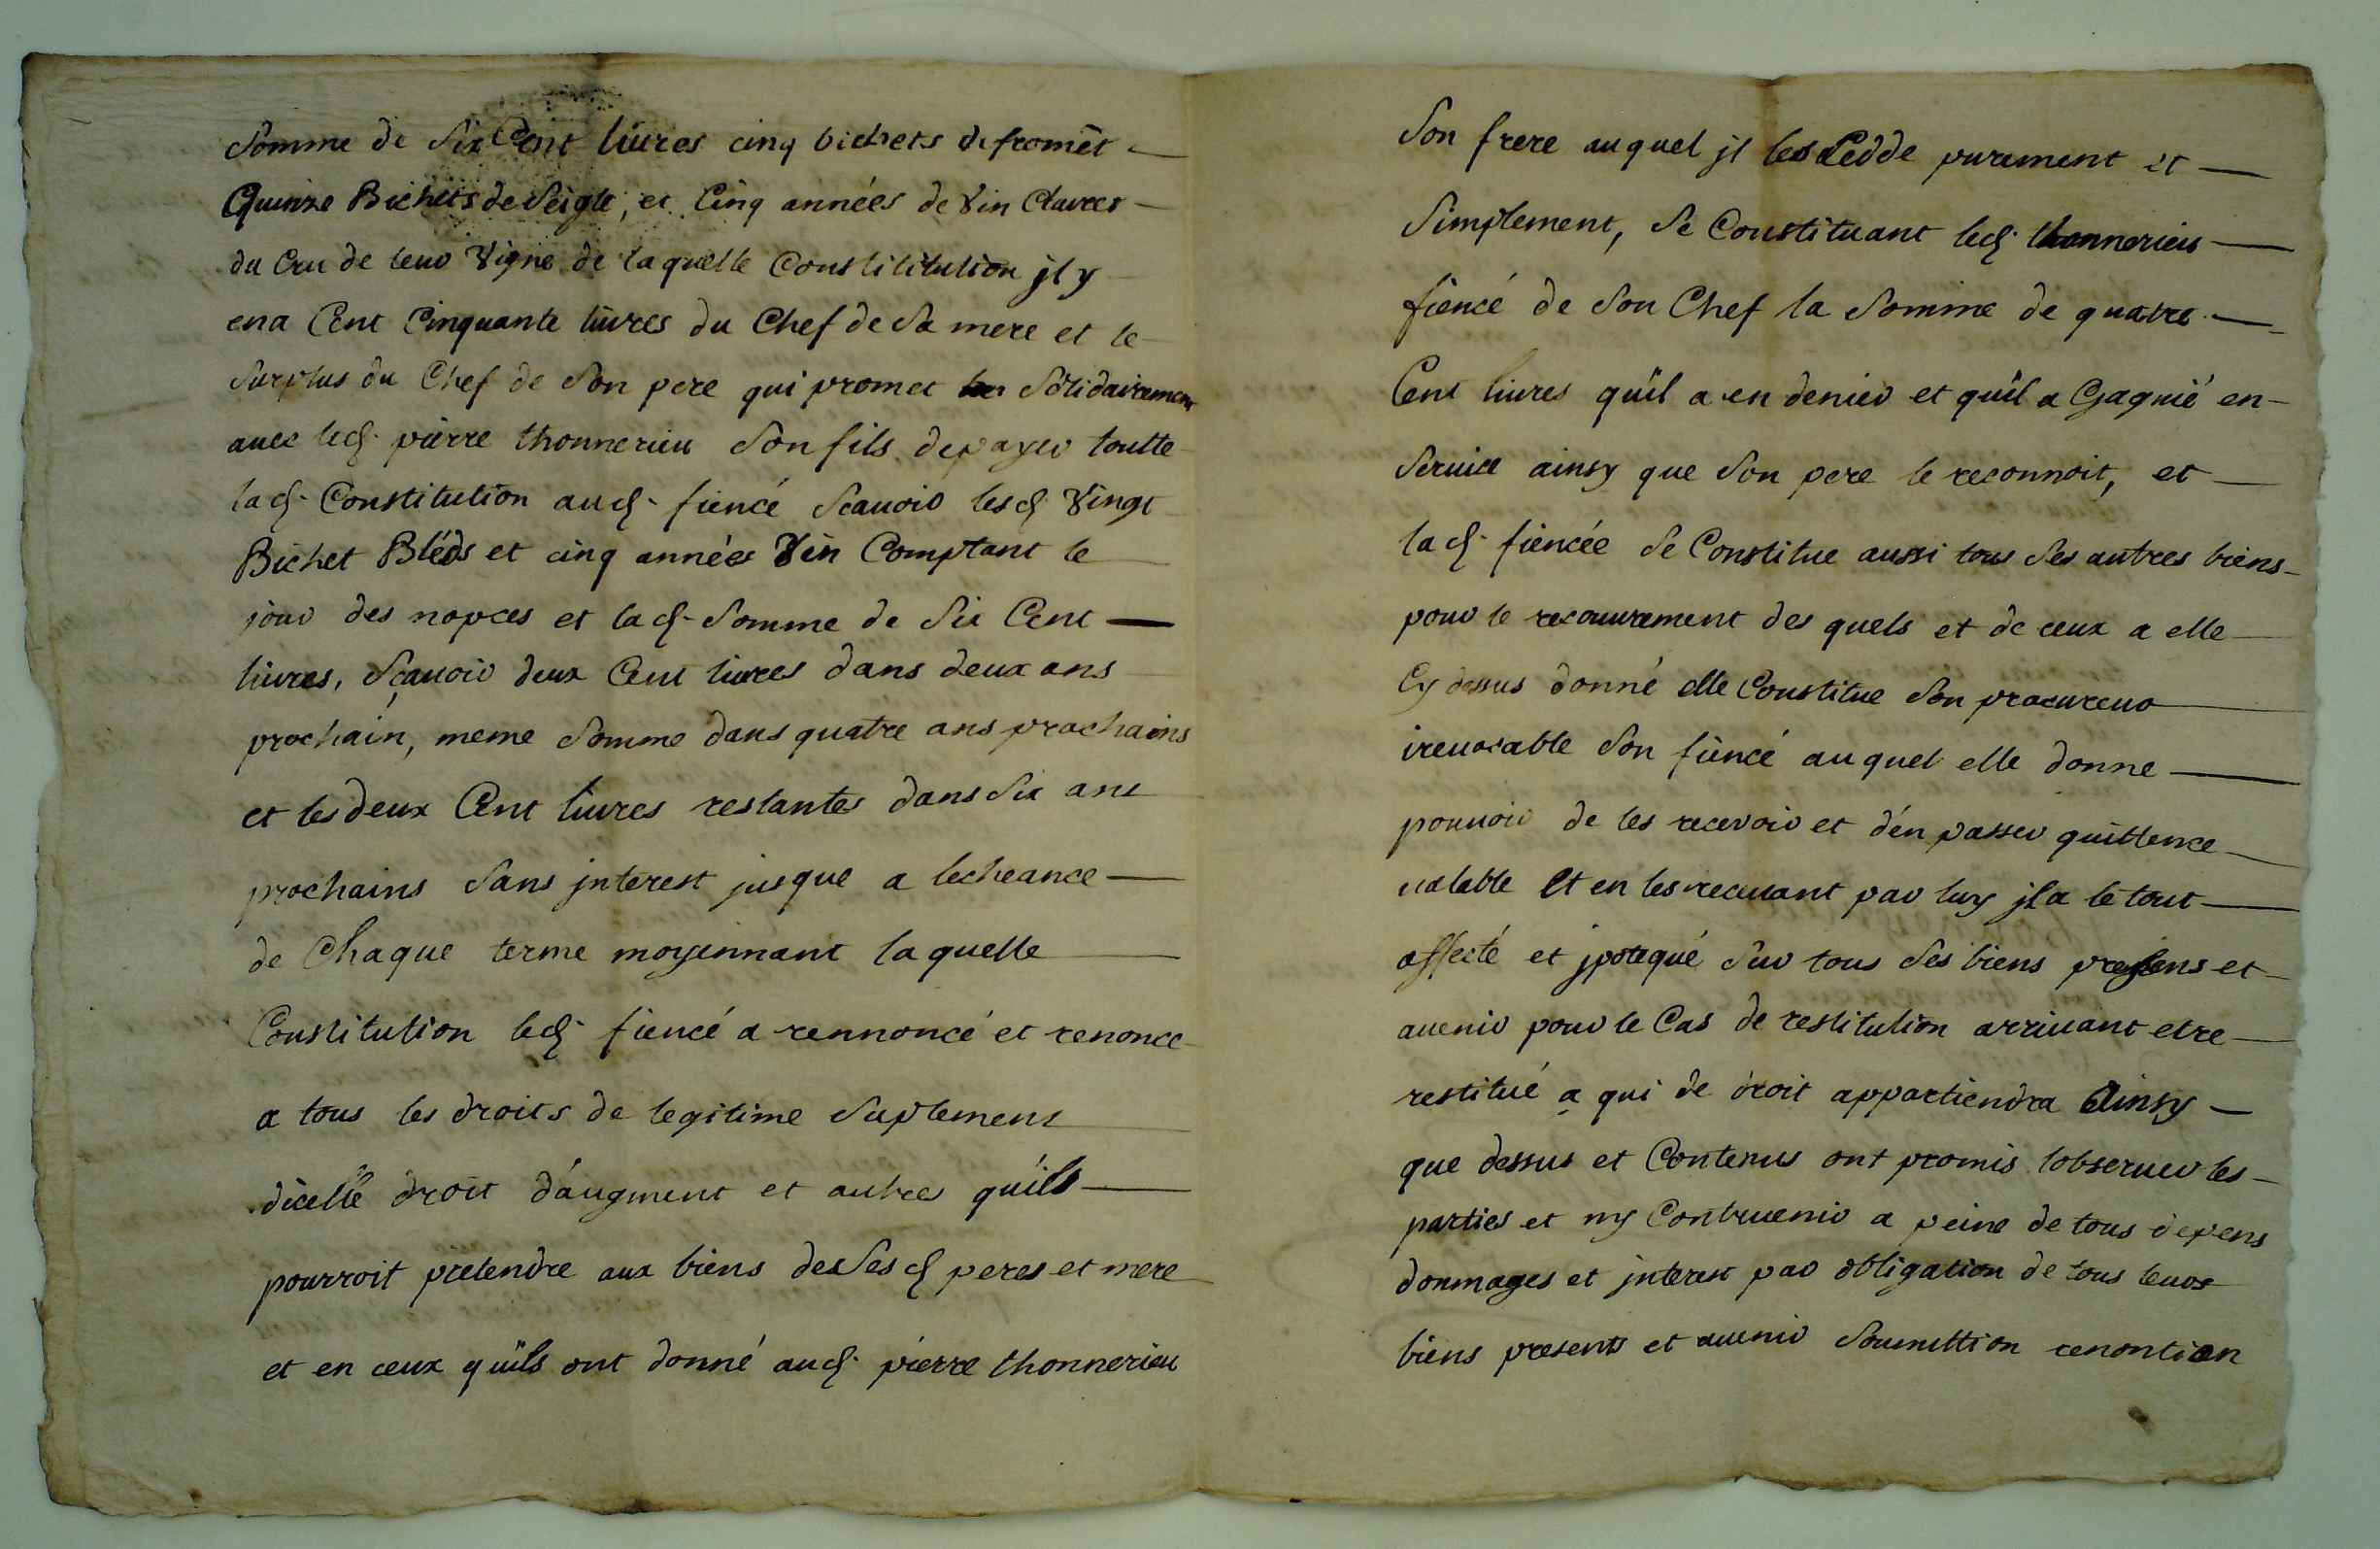 Somme de Six Cent livres cinq bichets de fromēt
Quinze Bichets de Seigle, et Cinq années de Vin Clairet
du Cru de leur Vigne de laquelle Constititution jl y
en a Cent Cinquante livres du Chef de Sa mere et le
Surplus du Chef de Son pere qui promet Solidairement
avec led. pierre thonnerieu Son fils de payer toutte
lad. Constitution aud. fiencé Scauoir lesd. Vingt
Bichet Bléds et cinq années Vin Comptant le
jour des nopces et lad. Somme de Six Cent
livres, Sçauoir deux Cent livres dans deux ans
prochain, meme Somme dans quatre ans prochains
et les deux Cent livres restantes dans Six ans
prochains Sans jnterest jusque a lecheance
de Chaque terme moyennant laquelle
Constitution led. fiencé a rennoncé et renonce
a tous les droits de legitime Suplement
dicelle droit d'augment et autres qu'ils
pourroit pretendre aux biens de Sesd peres et mere
et en ceux qu'ils ont donné aud. pierre thonnerieu
Son frere auquel jl les Cedde purement et
Simplement, Se Constituant led. thonnerieu
fiencé de Son Chef la Somme de quatre
Cent livres qu'il a en denier et qu'il a Gagnié en
Seruice ainsy que Son pere le reconnoit, et
lad. fiencée Se Constitue aussi tous Ses autres biens
pour le recouurement des quels et de ceux a elle
Cy dessus donné elle Constitue Son procureur
ireuocable Son fiencé auquel elle donne
pouuoir de les recevoir et d'en passer quittence
ualable Et en les receuant par luy jl a le tout
affecté et jpotequé Sur tous Ses biens presens et
auenir pour le Cas de restitution arriuant etre
restitué a qui de droit appartiendra Ainsy
que dessus et Contenus ont promis lobseruer les
parties et ny Contreuenir a peine de tous depens
dommages et jnterest par obligation de tous leurs
biens presents et auenir Soumittion renontion